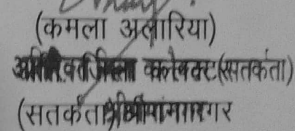 (कमला अलारिया)
अति. जिला कलेक्टर (सतर्कता)
(सतर्कता) श्रीगंगानगर